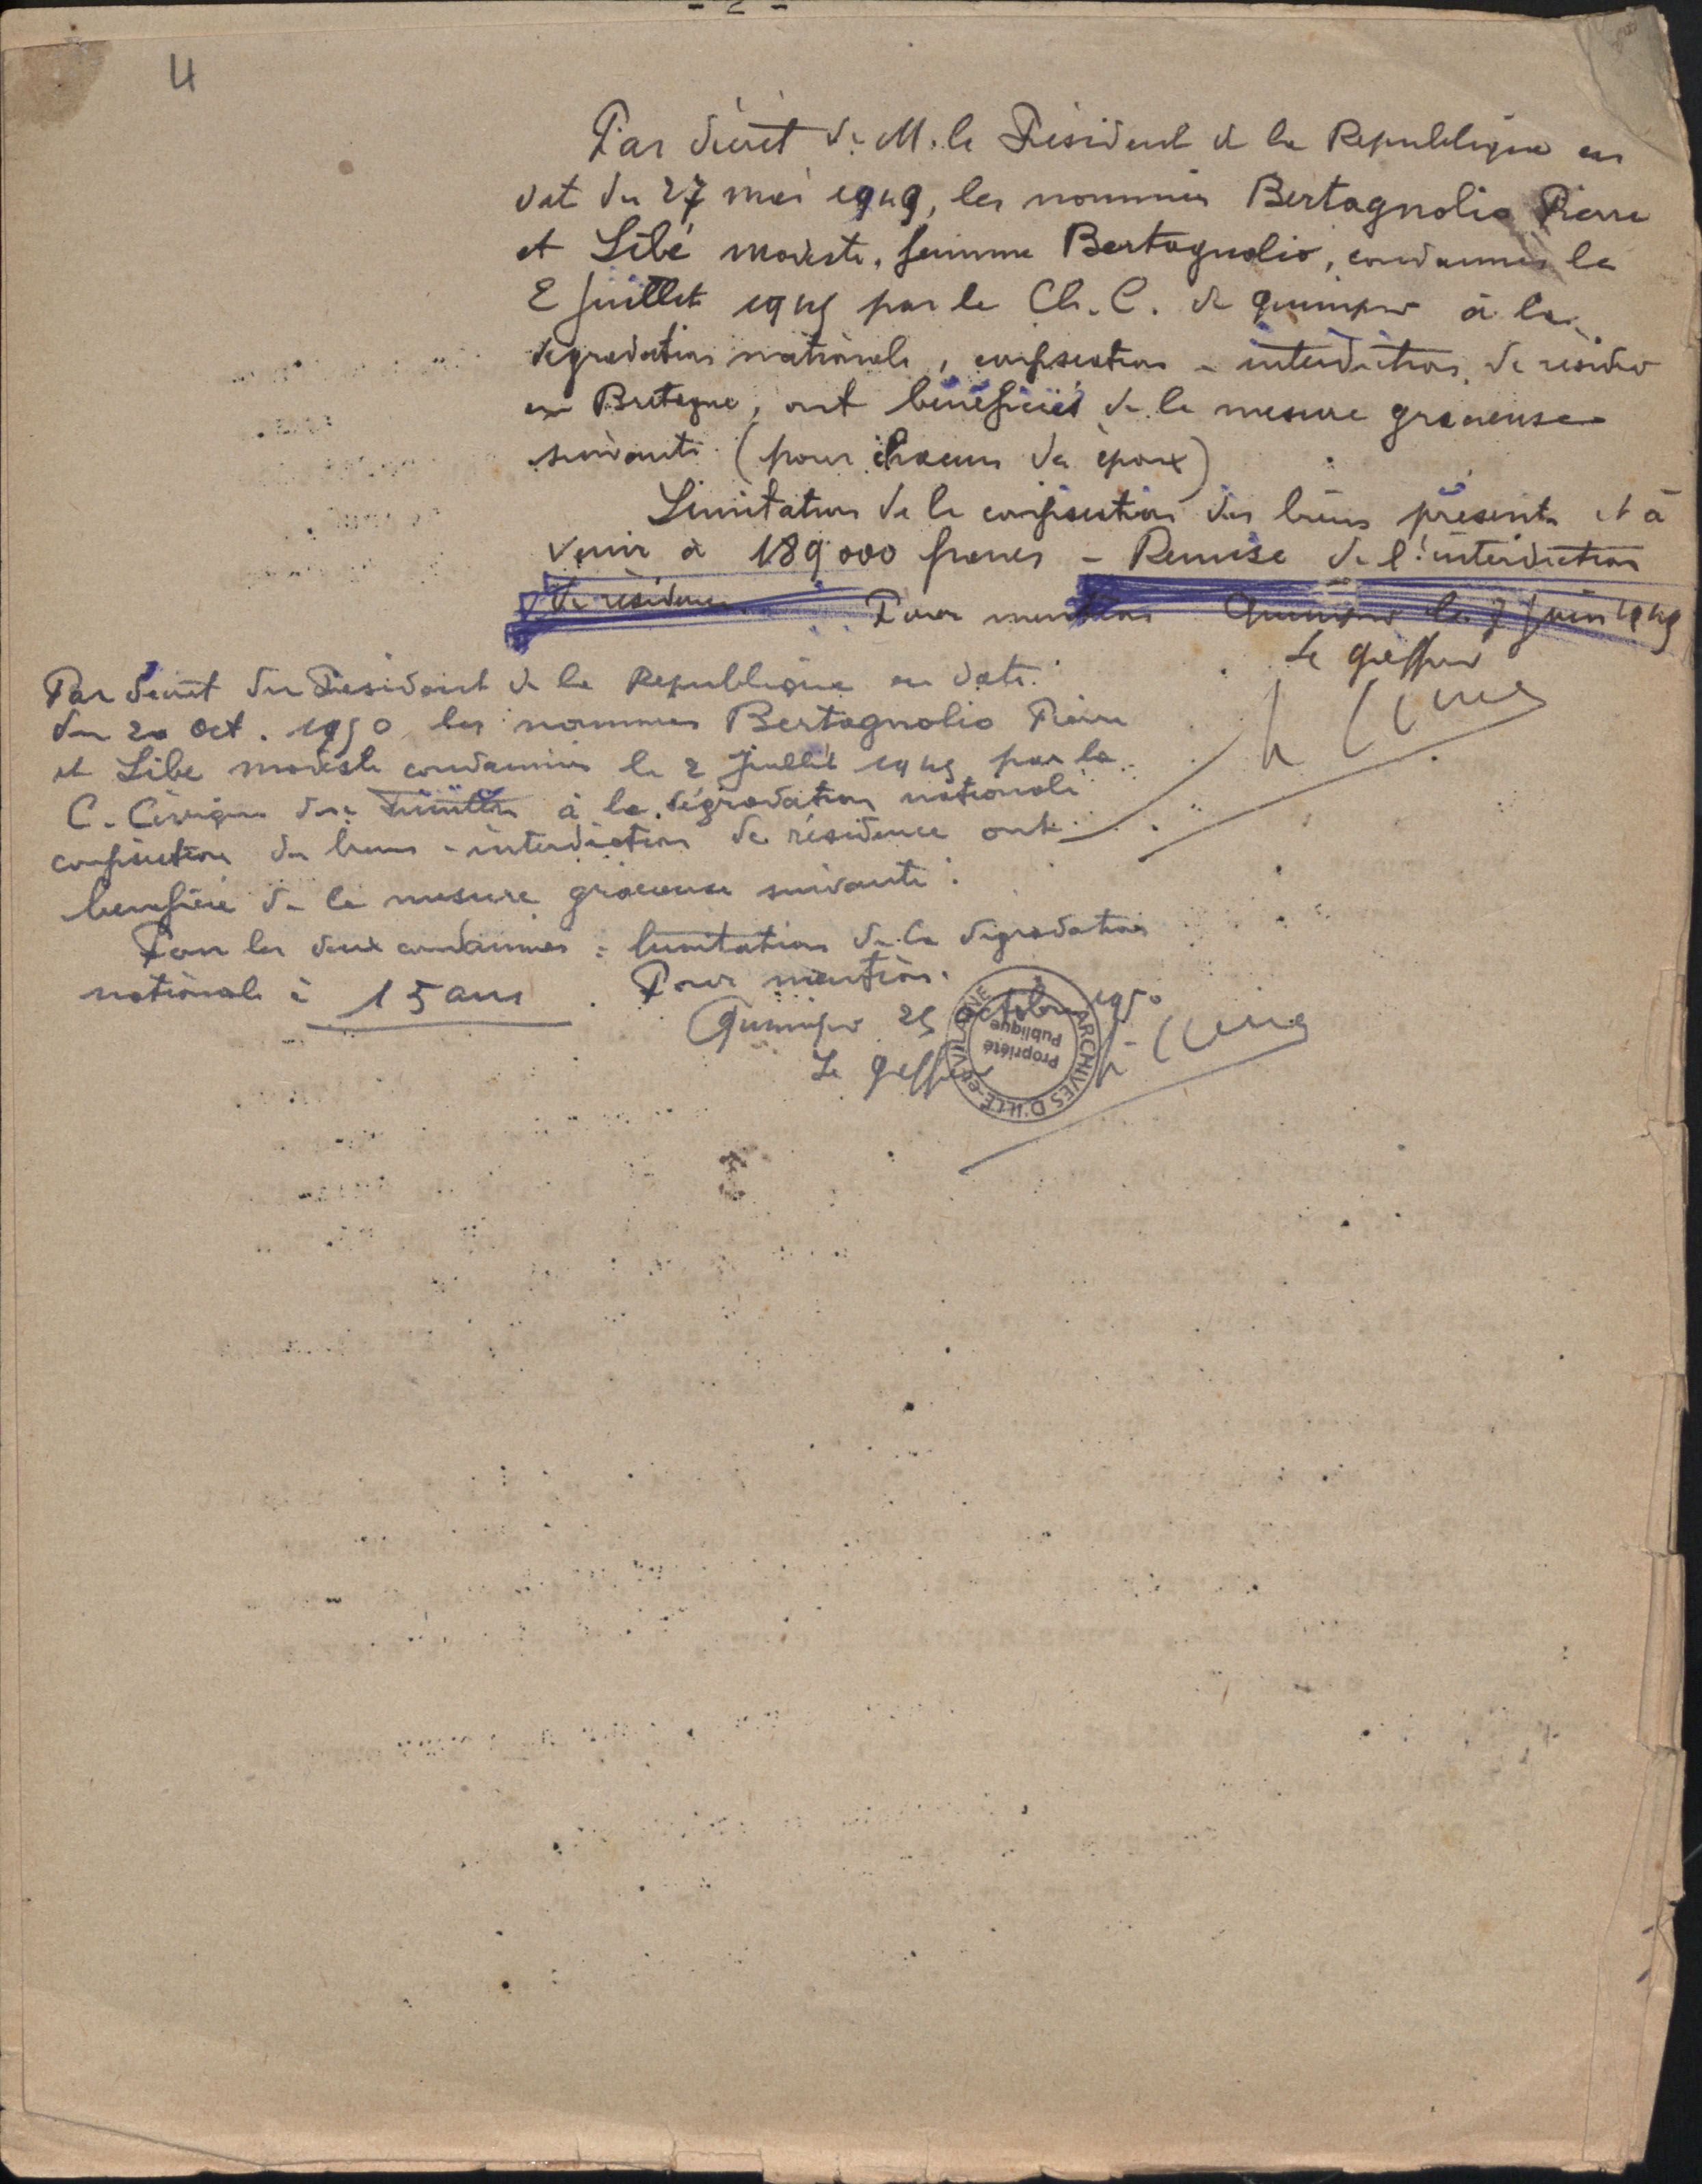 - 2 -
4
Par décret de M. le Président de la République en
dat du 27 mai 1949, les nommés Bertagnolio Pierre
et Libé Modeste, femme Bertagnolio, condamnés le
2 Juillet 1945 par la Ch. C. de Quimper à la
dégradation nationale, confiscation - interdiction de résider
en Bretagne, ont bénéficié de la mesure gracieuse
suivante (pour chacun des époux)
Limitation de la confiscation des biens présents et à
venir à 189 000 francs - Remise de l'interdiction
de résidence. Pour mention Quimper le 7 Juin 1949
Le greffier
Par décret du Président de la République en date
du 20 Oct. 1950 les nommés Bertagnolio Pierre
et Libe Modeste condamnés le 2 Juillet 1945 par la
C. Civique du Finistère à la dégradation nationale
confiscation des biens - interdiction de résidence ont
bénéficié de la mesure gracieuse suivante :
Pour les deux condamnés : limitation de la dégradation
nationale à 15 ans. Pour mention.
Quimper 25 Octobre 1950
Le greffier
ARCHIVES D'ILLE-et-VILAINE
Propriété
Publique